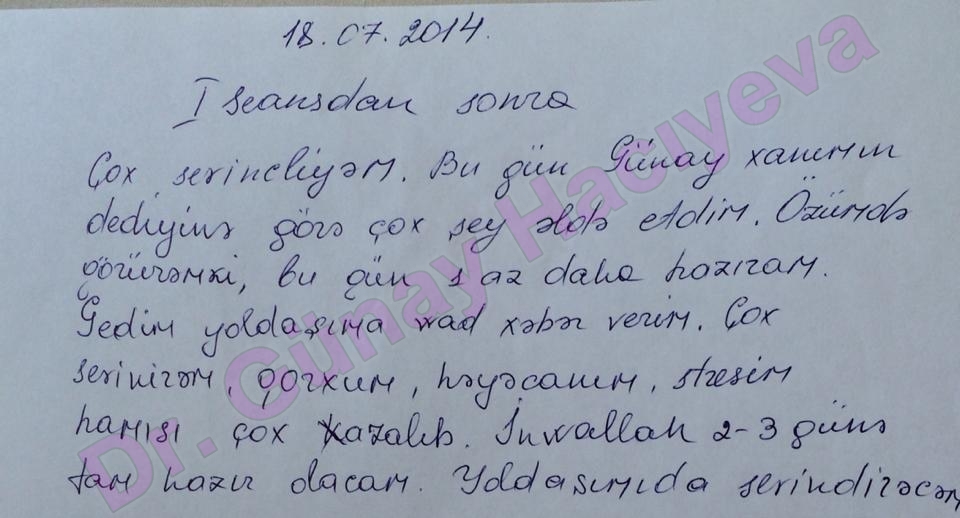 18.07.2014.
I seansdan sonra
Çox serincliyəm. Bu gün Günay xanımın
dediyinə görə çox şey əldə etdim. Özümdə
görürəmki, bu gün 1 az daha hazıram.
Gedim yoldaşıma wad xəbər verim. Çox
sevinirəm, qorxum, həyəcanım, stresim
hamısı çox azalıb. İnwallah 2-3 günə
tam hazır olacam. Yoldaşımıda sevindirəcəm
Dr. Günay Hacıyeva